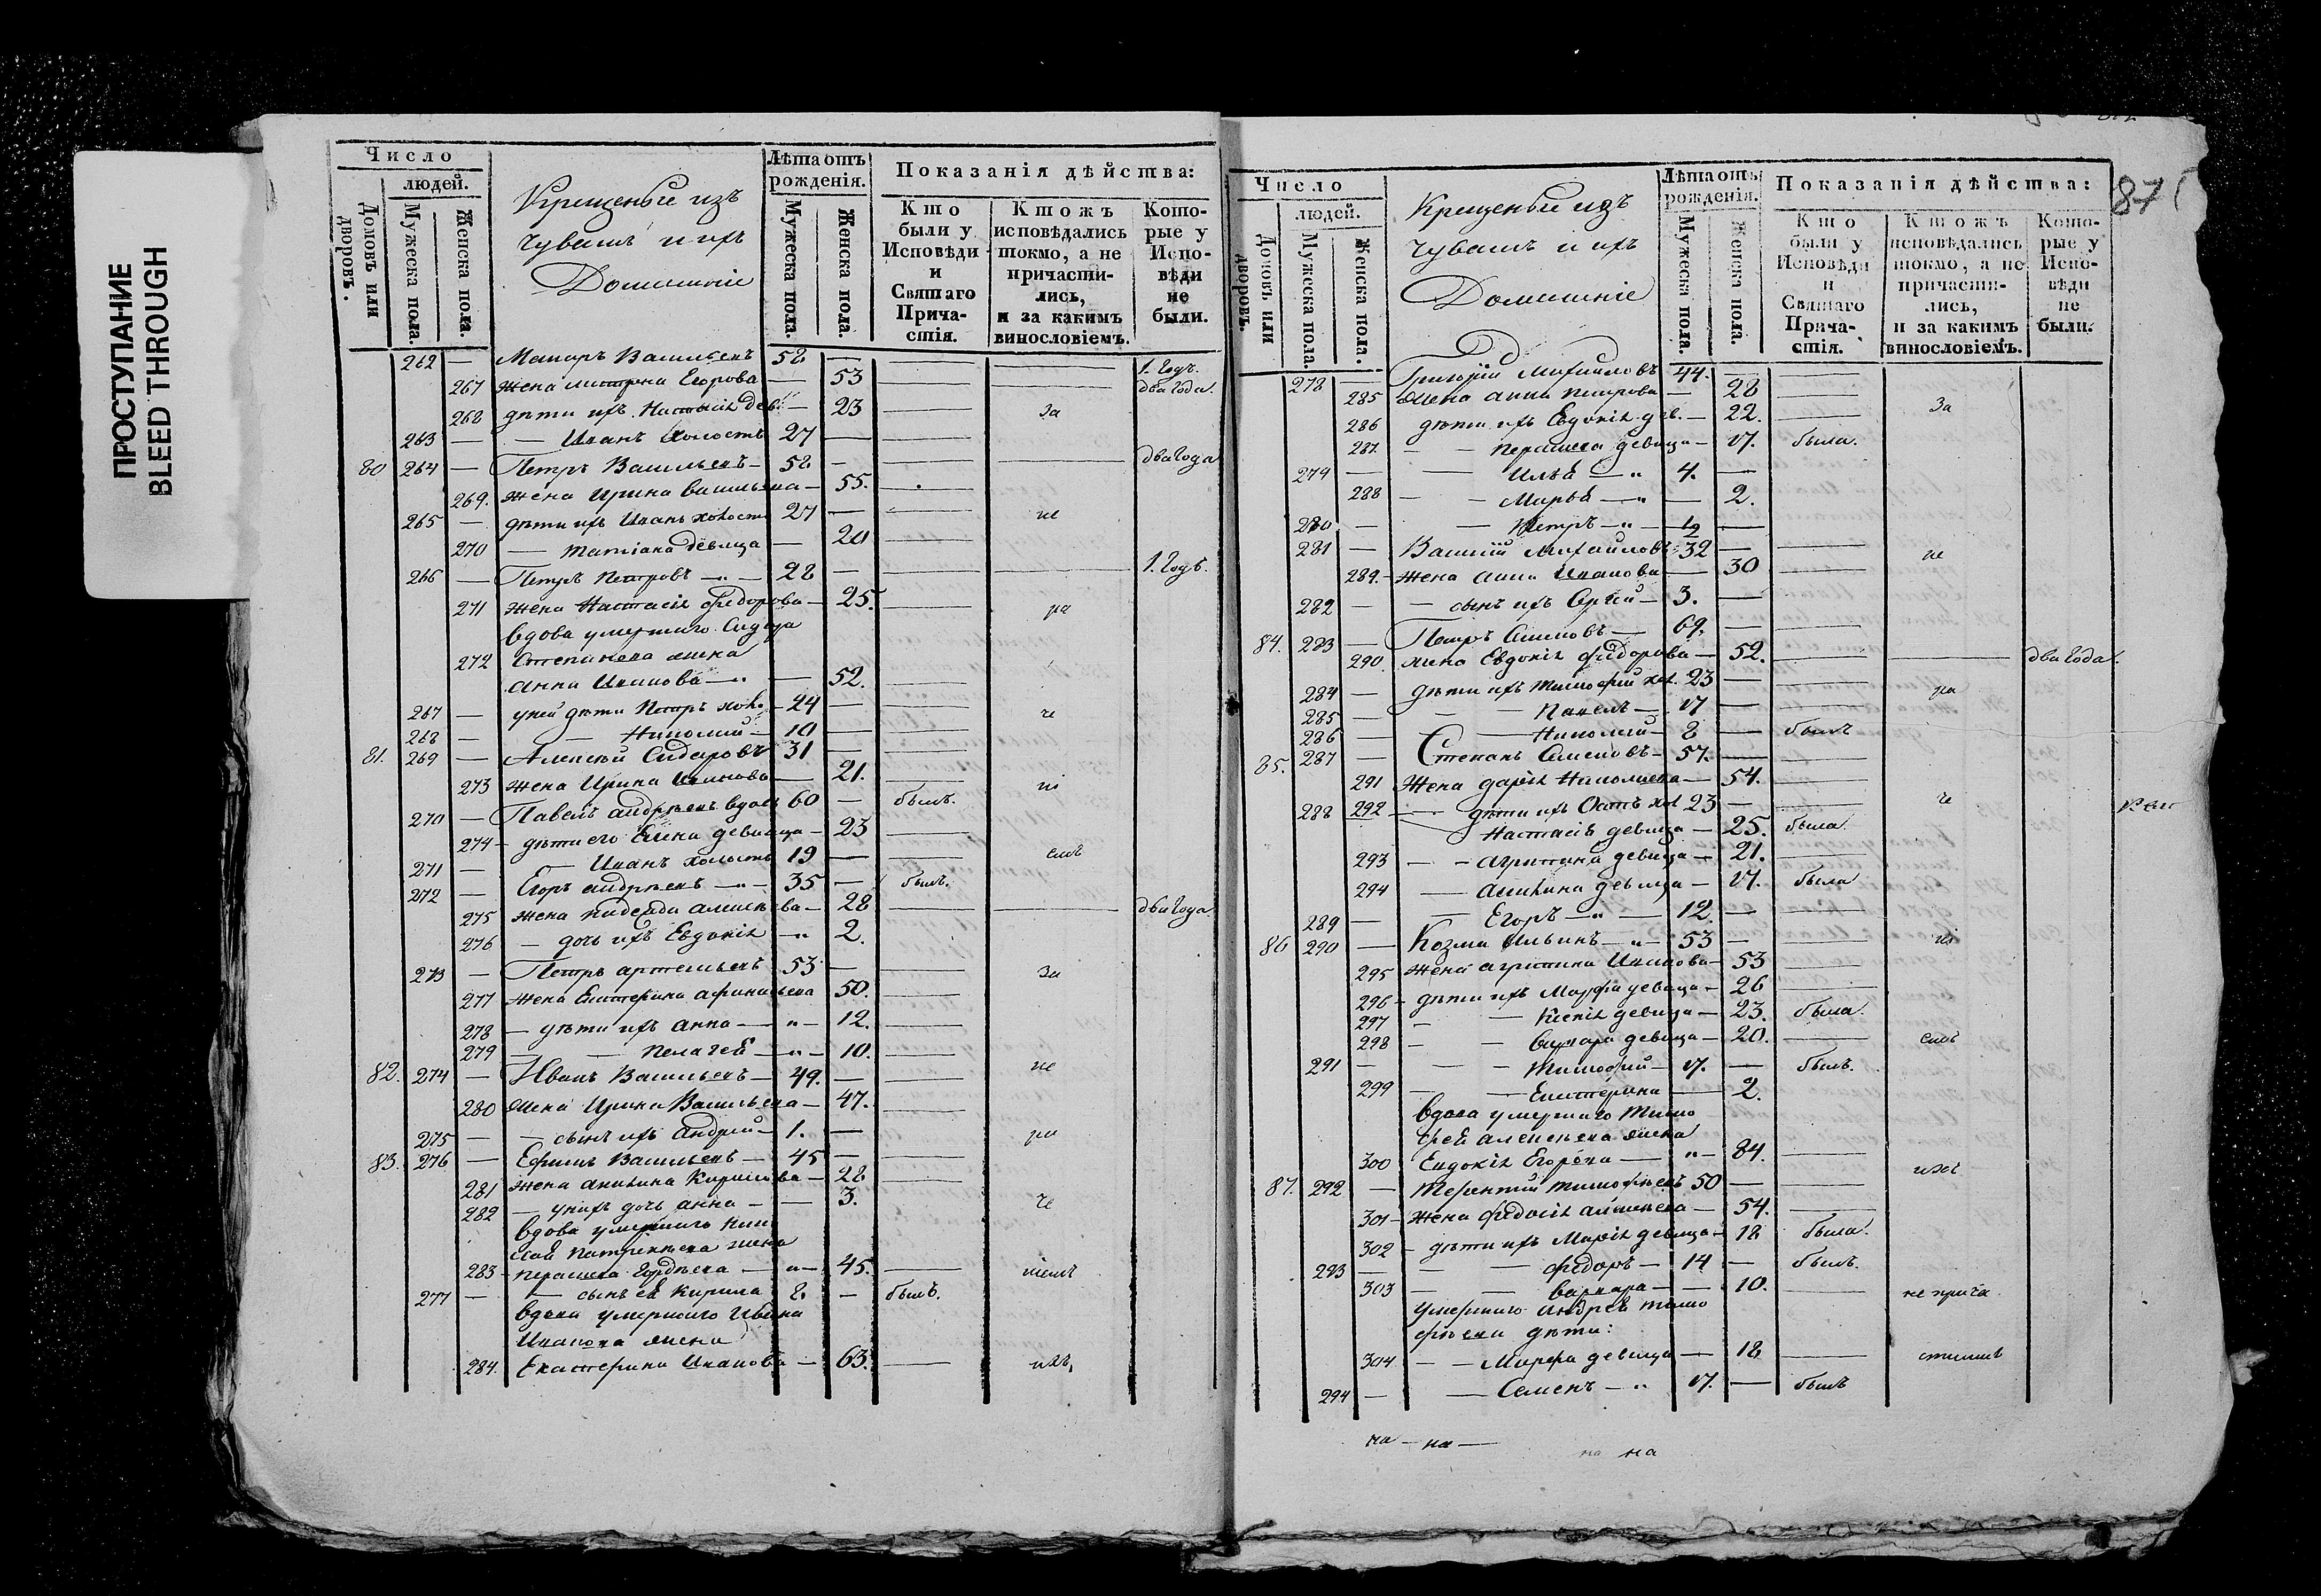 ПРОСТУПАНИЕ
BLEED THROUGH
Число
людей.
Домовъ или дворовъ.
Мужеска пола.
Женска пола.
Крещеные изъ
чувашъ и ихъ
Домашніе
Лѣта отъ рожденія.
Мужеска пола.
Женска пола.
Показанія дѣйства:
Кто были у Исповѣди и Святаго Прича-стія.
Ктожъ исповѣдались токмо, а не причасти-лись, и за какимъ винословіемъ.
Кото-рые у Испо-вѣди не были.
262 — Макаръ Васильевъ 58 — 1. Годъ.
267 жена Матрена Егорова — 53 два Года.
268 дѣти ихъ Настасія дев. — 23 За
263 — Иванъ холостъ 27 —
80 264 — Петръ Васильевъ — 58 — два Года
269. жена Ирина Васильева — 55.
265 — дѣти ихъ Иванъ холостъ 27 — не
270 — Татіана девица — 20
266 — Петръ Петровъ — 28 — 1. Годъ.
271 жена Настасія Федорова — 25. ра
вдова умершаго Сидора
272 Степанова жена
Анна Иванова — 52.
267 — у ней дѣти Петръ хол. — 24 — че
268 — Николай — 10 —
81. 269 — Алексѣй Сидоровъ 31 —
273 жена Ирина Иванова — 21. ні
270 — Павелъ Андрѣевъ вдовъ 60 — былъ.
274 — дѣти его Елена девица — 23
271 — Иванъ холостъ 19 — емъ
272 — Егоръ Андрѣевъ — 35 — былъ.
275 жена Надежда Алексѣева — 28 два Года.
276 — дочь ихъ Евдокія — 2.
273 — Петръ Артемьевъ 53 — За
277 жена Екатерина Афанасьева 50.
278 — дѣти ихъ Анна — 12.
279 — Пелагея — 10.
82. 274 — Иванъ Васильевъ — 49. — не
280 жена Ирина Васильева — 47.
275 — сынъ ихъ Андрей — 1. — ра
83. 276 — Ефимъ Васильевъ — 45 —
281 жена Акилина Кирилова — 28
282 — у нихъ дочь Анна — 3. че
вдова умершаго
жена
283 — Гордѣева — 45. ніемъ
277 — сынъ ея Кирила 8. — былъ.
вдова умершаго Ивана
Иванова жена
284. Екатерина Иванова — 63.
87
Число
людей.
Домовъ или дворовъ.
Мужеска пола.
Женска пола.
Крещеные изъ
чувашъ и ихъ
Домашніе
Лѣта отъ рожденія.
Мужеска пола.
Женска пола.
Показанія дѣйства:
Кто были у Исповѣди и Святаго Прича-стія.
Ктожъ исповѣдались токмо, а не причасти-лись, и за какимъ винословіемъ.
Кото-рые у Испо-вѣди не были.
278 — Григорій Михайловъ 44. —
285 жена Анна Петрова — 28 За
286 дѣти ихъ Евдокія дев. — 22.
287. — девица — 17. была.
279 — Илья — 4. —
288 — Марья — 2.
280 — Петръ — ½ —
281 — Василій Михайловъ 32 — не
289. — жена Анна Иванова — 30
282 — сынъ ихъ Сергѣй — 3. —
84. 283 — Петръ Семеновъ — 69. —
290. жена Евдокія Федорова — 52. два Года.
284 — дѣти ихъ Тимофей хол. 23 — ра
285 — Павелъ — 17 —
286 — Николай — 8 — былъ
85. 287 — Степанъ Семеновъ — 57. —
291 жена Дарія Николаева — 54. че
288 292 — дѣти ихъ хол 23 —
Настасія девица — 25. была.
293 — Агрипина девица — 21.
294 — Акилина девица — 17. была
289 — Егоръ — 12. —
86 290 — Козма Ильинъ — 53 — ні
295 жена Агрипина Иванова — 53
296 — дѣти ихъ Марфа девица — 26
297 — девица — 23. была.
298 — Варвара девица — 20. емъ
291 — Тимофей — 17. — былъ.
299 — Екатерина — 2.
вдова умершаго Тимо
фея Алексѣева жена
300 Евдокія Егорова — 84.
87. 292 — Терентій Тимофѣевъ 50 —
301 — жена Федосія Алексѣева — 54.
302 — дѣти ихъ Марія девица — 18 была.
293 — Федоръ — 14 — былъ.
303 — Варвара — 10. не прича
умершаго Андрея Тимо
фѣева дѣти:
304 — Марфа девица — 18 стились
294 — Семенъ — 17. — былъ
на — на —
на на